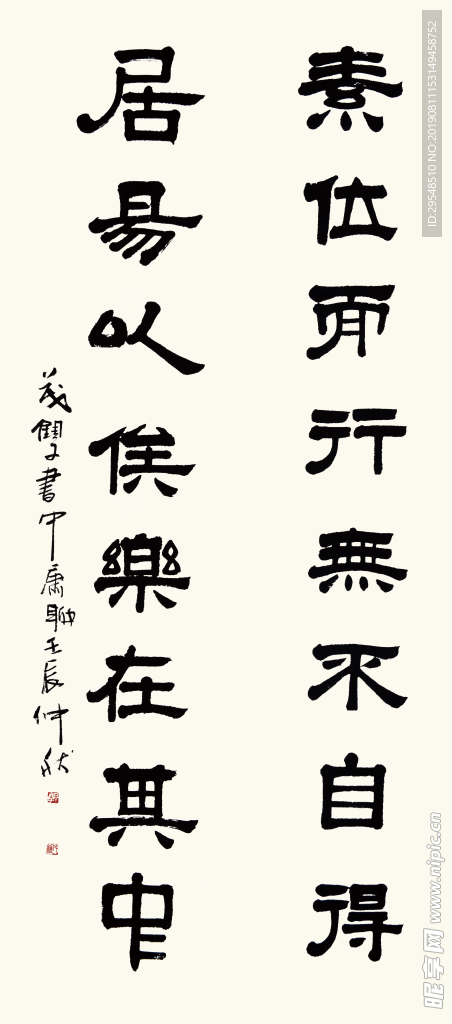 素位而行無不自得
居易以俟樂在其中
書中庸聯壬辰仲秋
ID:29548510 NO:20190811153149458752
昵享网 www.nipic.cn